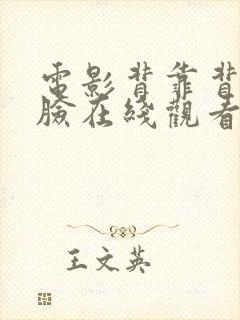 電影背靠背
臉在綫觀看
王文英